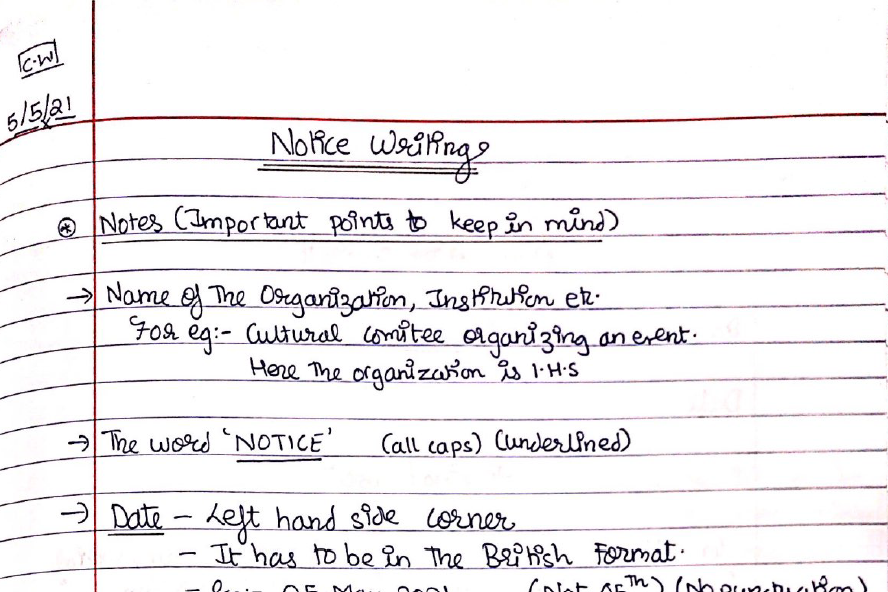 C.W
5/5/21
Notice Writing
Notes (Important points to keep in mind)
→ Name of The Organization, Institution etc.
For eg:- Cultural comitee organizing an event.
Here The organization is I.H.S
→ The word 'NOTICE' (all caps) (underlined)
→ Date - Left hand side corner
- It has to be in The British Format.
05 May 2021 (Not 05Th) (No punctuation)